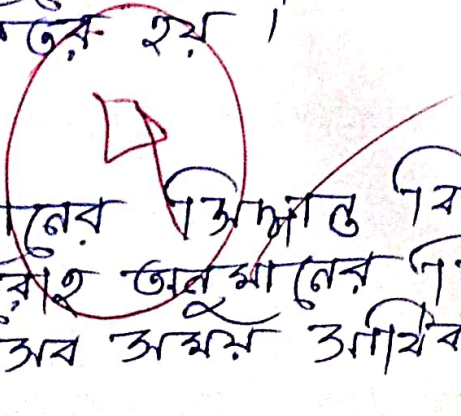 তর হয় ।
নের সিদ্ধান্ত বি
রোহ অনুমানের সি
সব সময় আর্থিব